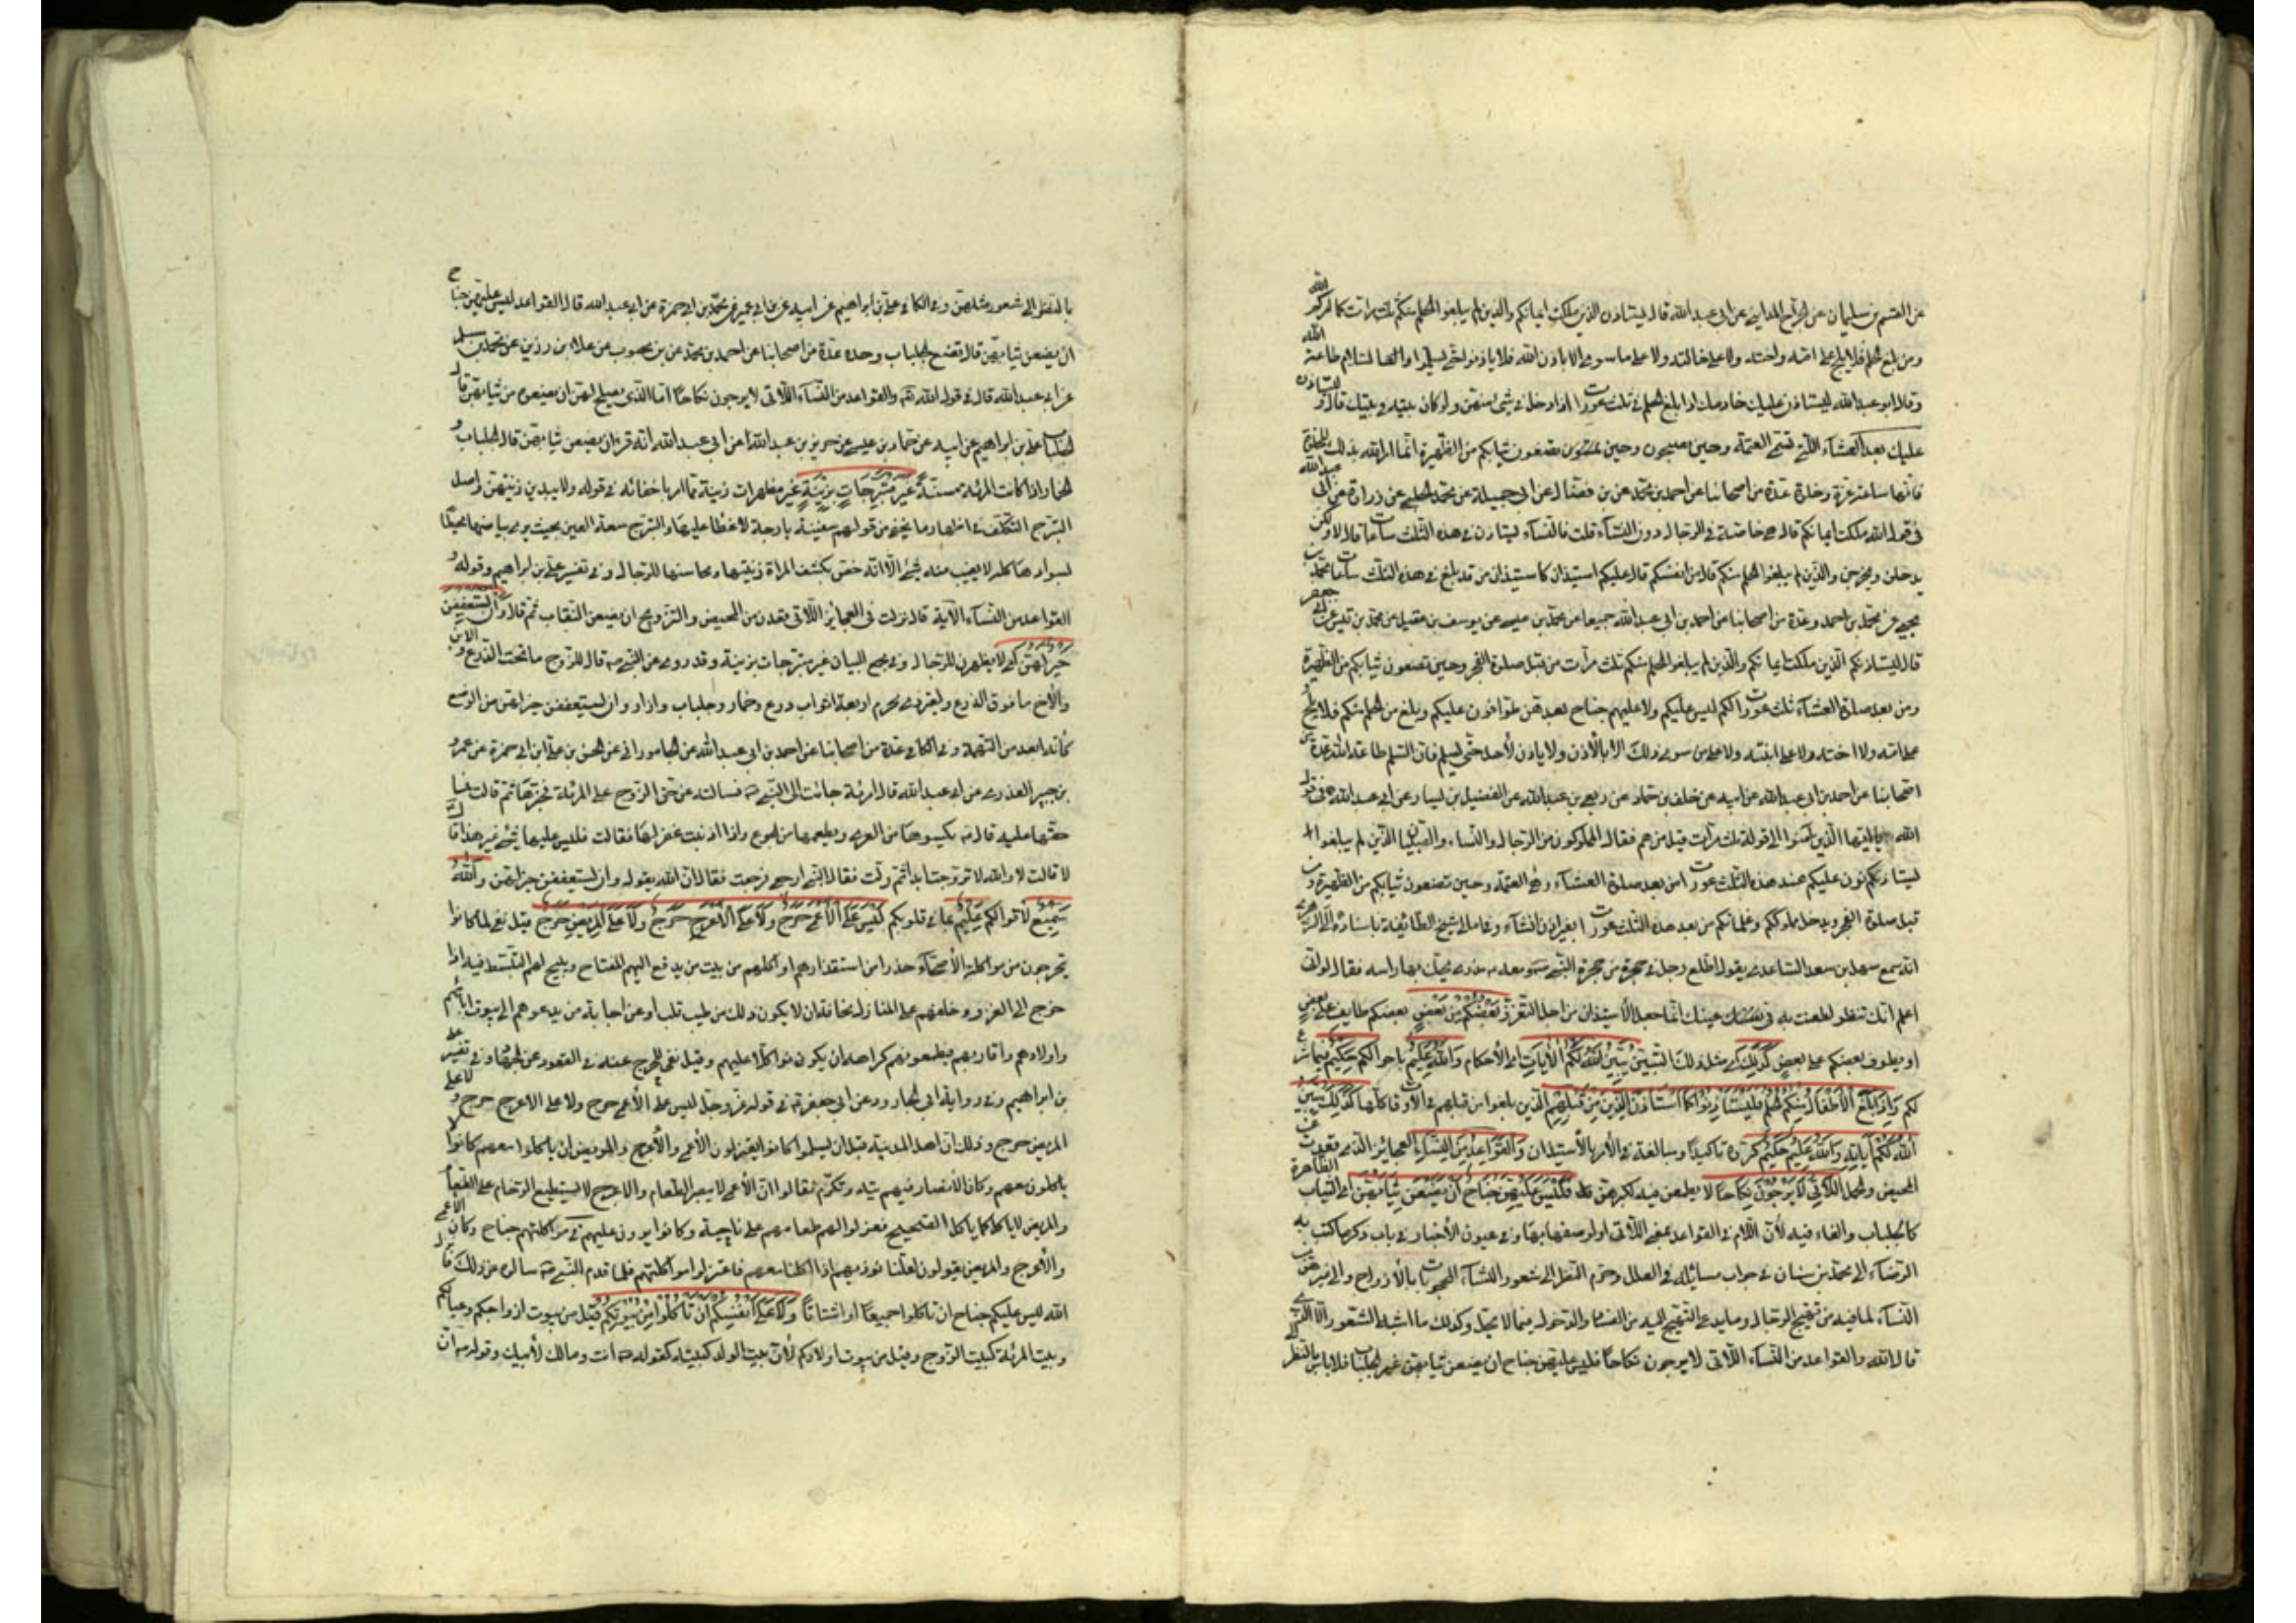 عن القسم بن سليمان عن جراح المدايني عن ابي عبدالله قال ليستاذن الذين ملكت ايمانكم والذين لم يبلغوا الحلم منكم ثلث مرات كما امركم الله
ومن بلغ الحلم فلا يلج على امه ولا على اخته ولا على خالته ولا على ما سوى الا باذن الله فلا ياذنوا حتى يسلم والسلام طاعة الله
وقال ابو عبدالله ليستاذن عليك خادمك اذا بلغ الحلم في ثلث عورات اذا دخل في شئ منهن ولو كان بيته في بيتك قال وليستاذن
عليك بعد العشاء التي تسمى العتمة وحين تصبحون وحين تضعون ثيابكم من الظهيرة انما امر الله بذلك للخلوة
فانها ساعة غرة وخلوة عدة من اصحابنا عن احمد بن محمد عن بن فضال عن ابي جميلة عن محمد الحلبي عن زرارة عن ابي عبدالله
في قول الله ملكت ايمانكم قال هي خاصة في الرجال دون النساء قلت فالنساء يستاذن في هذه الثلث ساعات قال لا ولكن
يدخلن ويخرجن والذين لم يبلغوا الحلم منكم قال من انفسكم قال عليكم استيذان كاستيذان من قد بلغ في هذه الثلث ساعات محمد بن
يحيى عن محمد بن احمد وعدة من اصحابنا عن احمد بن ابي عبدالله جميعا عن محمد بن عيسى عن يوسف بن عقيل عن محمد بن قيس عن ابي جعفر
قال ليستاذنكم الذين ملكت ايمانكم والذين لم يبلغوا الحلم منكم ثلث مرات من قبل صلوة الفجر وحين تضعون ثيابكم من الظهيرة
ومن بعد صلوة العشاء ثلث عورات لكم ليس عليكم ولا عليهم جناح بعدهن طوافون عليكم ومن بلغ الحلم منكم فلا يلج
على امه ولا اخته ولا على ابنته ولا على من سوى ذلك الا بالاذن ولا ياذن لأحد حتى يسلم فان السلم طاعة الله عدة من
اصحابنا عن احمد بن ابي عبدالله عن ابيه عن خلف بن حماد عن ربعي بن عبدالله عن الفضيل بن يسار عن ابي عبدالله في قول
الله يا ايها الذين آمنوا الى قوله ثلث مرات قيل من هم فقال المملوكون من الرجال والنساء والصبيان الذين لم يبلغوا
يستاذنون عليكم عند هذه الثلث عورات من بعد صلوة العشاء وهي العتمة وحين تضعون ثيابكم من الظهيرة ومن
قبل صلوة الفجر ويدخل مملوككم وغلمانكم من بعد هذه الثلث عورات بغير اذن ان شاء وفي امالي شيخ الطائفة باسناده الى الزهري
انه سمع سهل بن سعد الساعدي يقول اطلع رجل في حجرة من حجرة النبي ومعه مدرى يحك بها راسه فقال لو اني
اعلم انك تنظر لطعنت به في عينك انما جعل الأستيذان من اجل النظر بَعْضُكُمْ مِنْ بَعْضٍ بعضكم طايف على بعض
او يطوف بعضكم على بعض كَذٰلِكَ اي مثل ذلك التبيين يُبَيِّنُ اللهُ لَكُمُ الْآيَاتِ اي الأحكام وَاللهُ عَلِيمٌ باحوالكم حَكِيمٌ فيما شرع
لكم وَاِذَا بَلَغَ الْأَطْفَالُ مِنْكُمُ الْحُلُمَ فَلْيَسْتَأْذِنُوا كَمَا اسْتَأْذَنَ الَّذِينَ مِنْ قَبْلِهِمْ الذين بلغوا من قبلهم في الأوقات كلها كَذٰلِكَ يُبَيِّنُ
اللهُ لَكُمْ آيَاتِهِ وَاللهُ عَلِيمٌ حَكِيمٌ كرره تاكيدا ومبالغة في الأمر بالأستيذان وَالْقَوَاعِدُ مِنَ النِّسَاءِ العجائز الذي قعدن عن
المحيض والحمل اللَّاتِي لَا يَرْجُونَ نِكَاحًا لا يطمعن فيه لكبرهن فَلَيْسَ عَلَيْهِنَّ جُنَاحٌ اَنْ يَضَعْنَ ثِيَابَهُنَّ اي الثياب الظاهرة
كالجلباب والفاء فيه لأن اللام في القواعد بمعنى اللاتي او لوصفها بها وفي عيون الأخبار في باب ذكر ما كتب به
الرضاء الى محمد بن سنان في جواب مسائله في العلل وحرم النظر الى شعور النساء المحجوبات بالأزواج والى غيرهن من
النساء لما فيه من تهييج الرجال وما يدعو التهييج اليه من الفساد والدخول فيما لا يحل وكذلك ما اشبه الشعور الا الذي
قال الله والقواعد من النساء اللاتي لا يرجون نكاحا فليس عليهن جناح ان يضعن ثيابهن غير الجلباب فلا باس بالنظر
بالنظر الى شعور مثلهن وفي الكافي علي بن ابراهيم عن ابيه عن بن ابي عمير عن محمد بن ابي حمزة عن ابي عبدالله قال القواعد ليس عليهن جناح
ان يضعن ثيابهن قال تضع الجلباب وحده عدة من اصحابنا عن احمد بن محمد عن بن محبوب عن علاء بن رزين عن محمد بن مسلم
عن ابي عبدالله قال في قول الله والقواعد من النساء اللاتي لا يرجون نكاحا اما الذي يصلح لهن ان يضعن من ثيابهن قال
الجلباب علي بن ابراهيم عن ابيه عن حماد بن عيسى عن حريز بن عبدالله عن ابي عبدالله انه قرء ان يضعن ثيابهن قال الجلباب و
الخمار اذا كانت المرئة مسنة غَيْرَ مُتَبَرِّجَاتٍ بِزِينَةٍ غير مظهرات زينة مما امر باخفائه في قوله ولا يبدين زينتهن واصل
التبرج التكلف في اظهار ما يخفى من قولهم سفينة بارجة لا غطا عليها والتبرج سعة العين بحيث يرى بياضها محيطا
بسوادها كله لا يغيب منه شئ الا انه خص بكشف المراة زينتها ومحاسنها للرجال وفي تفسير علي بن ابراهيم وقوله و
القواعد من النساء الآية قال نزلت في العجائز اللاتي قعدن من المحيض والتزويج ان يضعن النقاب ثم قال وَاَنْ يَسْتَعْفِفْنَ
خَيْرٌ لَهُنَّ اي لا يظهرن للرجال وفي مجمع البيان غير متبرجات بزينة وقد روي عن النبي قال للزوج ما تحت الدرع وللابن
والأخ ما فوق الدرع ولغير ذي محرم اربعة اثواب درع وخمار وجلباب وازار وان يستعففن خير لهن من الوضع
كانه ابعد من التهمة وفي الكافي عدة من اصحابنا عن احمد بن ابي عبدالله عن الجاموراني عن الحسن بن علي بن ابي حمزة عن عمرو
بن جبير العذرمي عن ابي عبدالله قال امرئة جائت الى النبي فسالته عن حق الزوج على المرئة فخبرها ثم قالت فما
حقها عليه قال يكسوها من العري ويطعمها من الجوع واذا اذنبت غفر لها فقالت فليس عليها شئ غير هذا قال
لا قالت لا والله لا تزوجت ابدا ثم ولت فقال النبي ارجعي فرجعت فقال ان الله يقول وان يستعففن خير لهن وَاللهُ
سَمِيعٌ لأقوالكم عَلِيمٌ بما في قلوبكم لَيْسَ عَلَى الْأَعْمَى حَرَجٌ وَلَا عَلَى الْأَعْرَجِ حَرَجٌ وَلَا عَلَى الْمَرِيضِ حَرَجٌ قيل نفي لما كانوا
يتحرجون من مواكلة الأصحاء حذرا من استقذارهم او اكلهم من بيت من يدفع اليهم المفتاح ويبيح لهم التبسط فيه اذا
خرج الى الغزو وخلفهم على المنازل مخافة ان لا يكون ذلك من طيب قلب او عن اجابة من يدعوهم الى بيوت آبائهم
واولادهم واقاربهم فيطعمونهم كراهة ان يكون نواكلا عليهم وقيل نفي للحرج عنه في القعود عن الجهاد وفي تفسير علي
بن ابراهيم وفي رواية ابي الجارود عن ابي جعفر في قوله عز وجل ليس على الأعمى حرج ولا على الاعرج حرج ولا على
المريض حرج وذلك ان اهل المدينة قبل ان يسلموا كانوا يعتزلون الأعمى والأعرج والمريض ان ياكلوا معهم كانوا لا
ياكلون معهم وكان الأنصار فيهم تيه وتكرم فقالوا ان الأعمى لا يبصر الطعام والاعرج لا يستطيع الزحام على الطعام
والمريض لا ياكل كما ياكل الصحيح فعزلوا لهم طعامهم على ناحية وكانوا يرون عليهم في مواكلتهم جناح وكان الأعمى
والأعرج والمريض يقولون لعلنا نوذيهم اذا اكلنا معهم فاعتزلوا مواكلتهم فلما قدم النبي سالوه عن ذلك فانزل
الله ليس عليكم جناح ان تاكلوا جميعا او اشتاتا وَلَا عَلَى اَنْفُسِكُمْ اَنْ تَأْكُلُوا مِنْ بُيُوتِكُمْ قيل من بيوت ازواجكم وعيالكم
وبيت المرئة كبيت الزوج وقيل من بيوت اولادكم لأن بيت الولد كبيته لقوله انت ومالك لأبيك وقوله ان